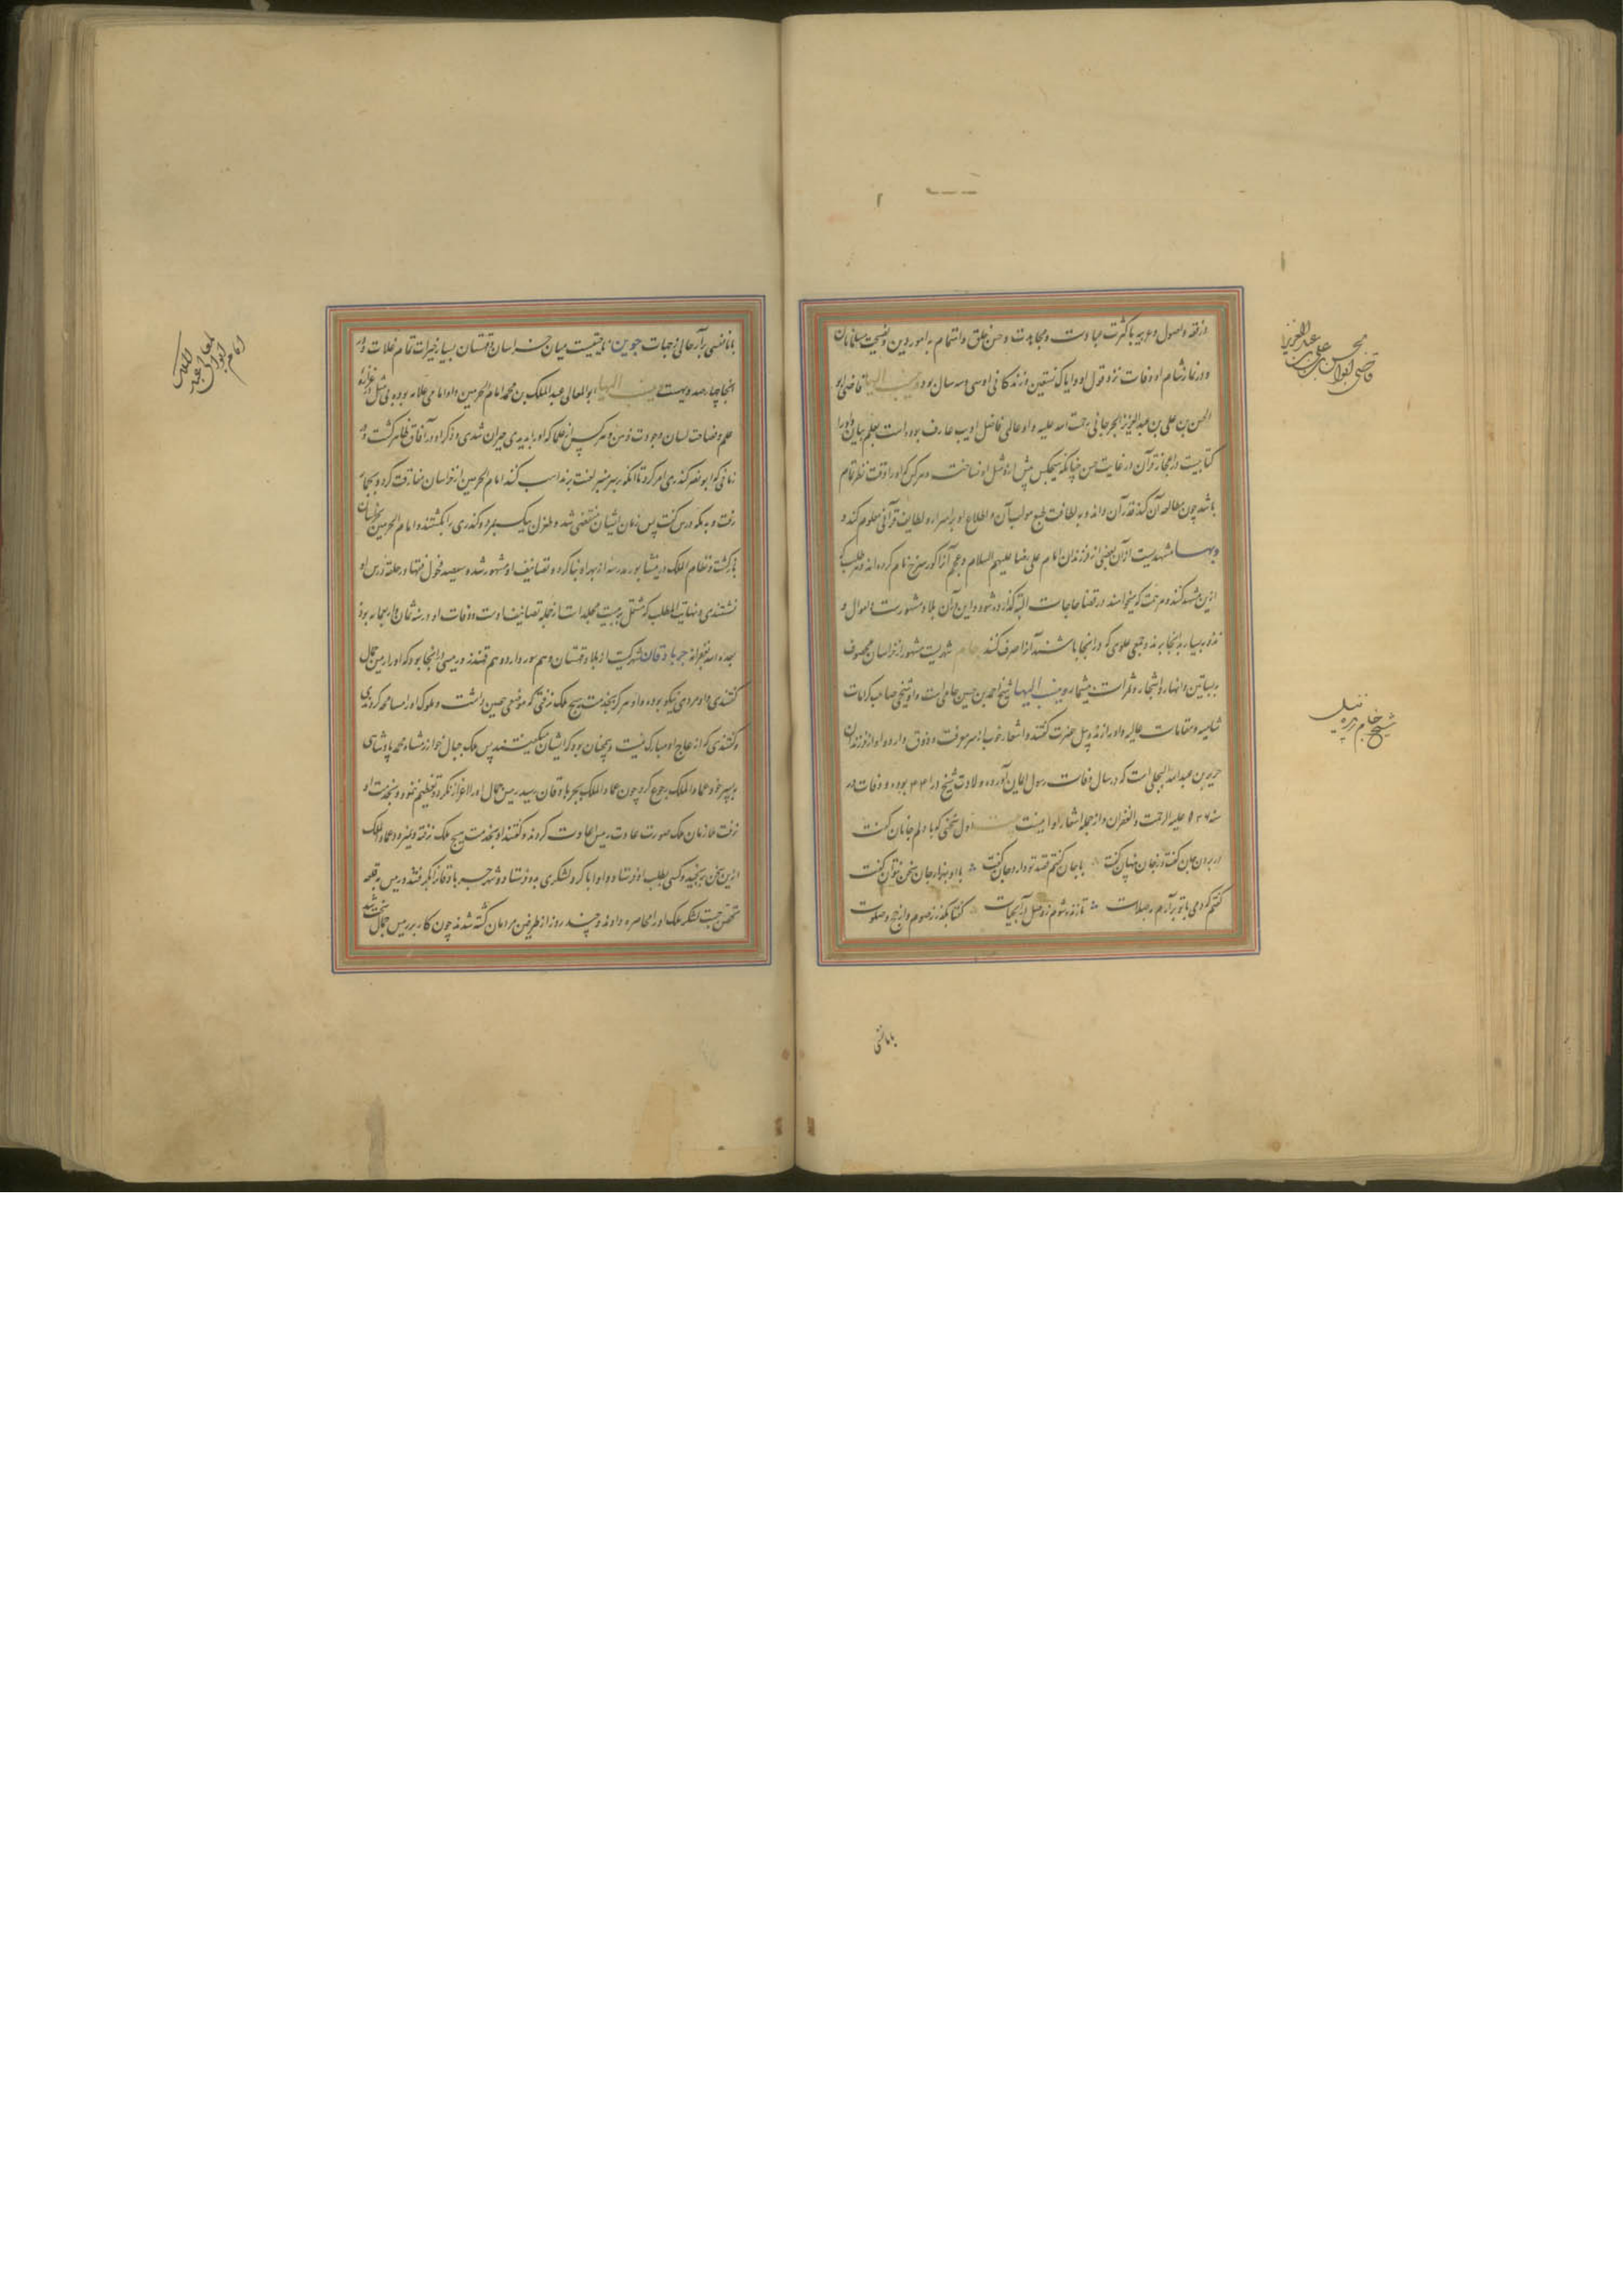 در فقه و اصول و عربیه با کثرت عبادت و مجاهدت و حسن خلق و اهتمام به امور دین و نصیحت مسلمانان
و در نماز شام او وفات نزد قول او و ایاک نستعین و زندکانی او سی و سه سال بود و ینسب الیها قاضی ابو
الحسن بن علی بن عبد العزیز الجرجانی رحمت الله علیه و او عالمی فاضل ادیب عارف بوده است بعلم بیان و او را
کتابیست در اعجاز قرآن در غایت حسن چنانکه هیچکس پیش از و مثل او نساخت و هر کس که او را وقت نظر تمام
باشد چون مطالعه آن کند قدر آن داند و به لطافت طبع مولف آن و اطلاع او بر اسرار و لطایف قرآنی معلوم کند و
و بها مشهدیست از آن بعضی از فرزندان امام علی رضا علیهم السلام و عجم آنرا کور سرخ نام کرده اند و هر طلب که
ازین مشهد کنند و مرحمت که میخواهند در قضا حاجات البته گذارده شود و این در آن بلاد مشهورست و اموال و
نذور بسیار به آنجا برند و جمعی علوی که در انجا باشند آنرا صرف کنند جام شهریست مشهور از خراسان محصوف
به بساتین و انهار و اشجار و ثمرات بیشمار و ینسب الیها شیخ احمد بن حسین جامی است و او شیخی صاحب کرامات
شامیه و مقامات عالیه و او را ژنده پیل حضرت کفتند و اشعار خوب از سر معرفت و ذوق دارد و او از فرزندان
جریر بن عبد الله البجلی است که در سال وفات رسول ایمان آورده و ولادت شیخ در ۴۴۱ بوده و وفات در
سنه ۵۳۶ علیه الرحمت و الغفران و از جمله اشعار او اینست اول سخنی که با دلم جانان کفت
در بردن جان کفت و ز جان پنهان کفت با جان کفتم قصد تو دارد جان کفت با او بهزار جان سخن نتوان کفت
کفتم که دمی با تو برآرم به صلات تا زنده شوم ز وصل آب حیات کفتا بگذر ز صوم و از حج و صلوت
با ما نفسی بر آر خالی ز جهات جوین ناحیتیست میان خراسان و قهستان بسیار خیرات تمام غلات و در
انجا چهار صد دیهست ینسب الیها ابو المعالی عبد الملک بن محمد امام الحرمین و او امامی علامه بوده بی مثل در غزارت
علم و فصاحت لسان و جودت ذهن و هر کس از علما که او را بدیدی حیران شدی و ذکر او در آفاق ظاهر کشت و در
زمانی که ابو نصر کندری امر کرد تا آنکه بر سر منبر لعنت بر مذاهب کنند امام الحرمین از خراسان مفارقت کرد و بحجاز
رفت و به مکه درس کفت پس زمان ایشان منقضی شد و طغرل بیک بمرد و کندری را بکشتند و امام الحرمین بخراسان
باز کشت و نظام الملک در نیشابور مدرسه از بهر او بنا کرد و تصانیف او مشهور شده و سیصد فحول فقها در حلقه درس او
نشستندی و نهایت المطلب که مشتمل بر بیست مجلد است از جمله تصانیف اوست و وفات او در سنه ثمان و اربعمایه بود
جربادقان شهرکیست از بلاد قهستان و هم سور دارد و هم قهندز و رییسی در انجا بود که او را رییس جمال
کفتندی و او مردی نیکو بوده و او هرکز بخدمت هیچ ملک نرفتی که موضعی حصین داشت و ملوک او را مسامحه کردندی
و کفتندی که ازعاج او مبارک نیست و همچنان بود که ایشان میکفتند پس ملک جبال خوارزمشاه محمد پادشاهی
به پسر خود عماد الملک رجوع کرد چون عماد الملک بجرباذقان رسید رییس جمال او را اعزاز نکرد و تعظیم ننمود و بخدمت او
نرفت ملازمان ملک صورت عادت رییس اعادت کردند و کفتند او بخدمت هیچ ملک نرفته و نمیرود عماد الملک
ازین سخن برنجید و کسی بطلب او فرستاد و او ابا کرد و لشکری بدو فرستاد و شهر جرباذقانرا بگرفتند و رییس به قلعه
تحصن جست لشکر ملک او را محاصره دادند و چند روز از طرفین مردمان کشته شدند چون کار بر رییس جمال سخت شد
قاضی ابوالحسن علی بن عبد العزیز
شیخ جام ژنده پیل
امام ابو المعالی عبد الملک
با ما نفسی